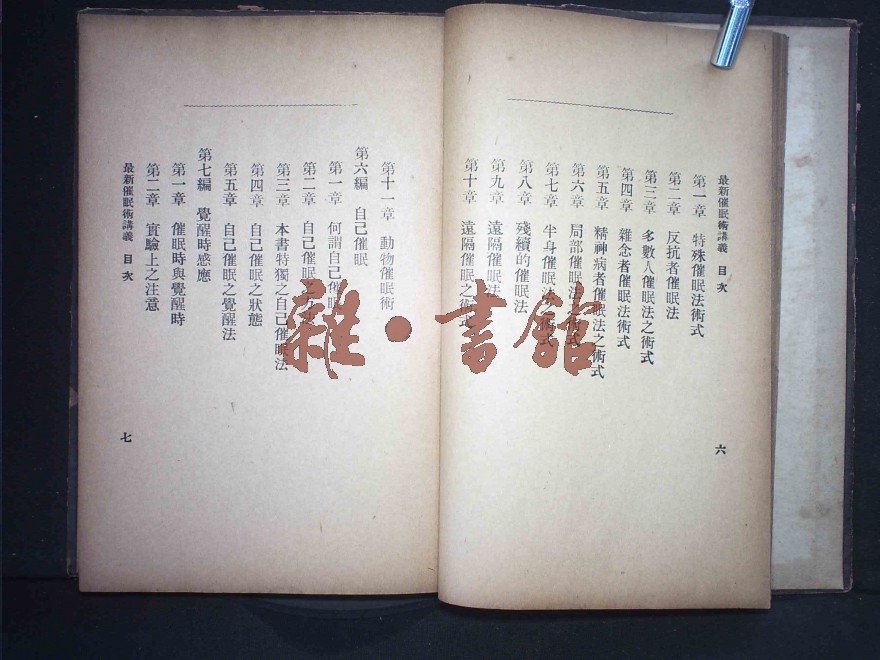 最新催眠術講義 目次
六
第一章 特殊催眠法術式
第二章 反抗者催眠法
第三章 多數人催眠法之術式
第四章 雜念者催眠法術式
第五章 精神病者催眠法之術式
第六章 局部催眠法之術式
第七章 半身催眠法之術式
第八章 殘續的催眠法
第九章 遠隔催眠法
第十章 遠隔催眠之術式
第十一章 動物催眠術
第六編 自己催眠
第一章 何謂自己催眠
第二章 自己催眠之方法
第三章 本書特獨之自己催眠法
第四章 自己催眠之狀態
第五章 自己催眠之覺醒法
第七編 覺醒時感應
第一章 催眠時與覺醒時
第二章 實驗上之注意
最新催眠術講義 目次
七
雜·書館